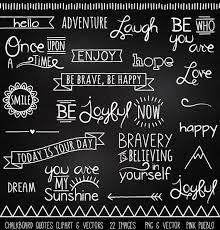 hello
ADVENTURE
Laugh
BE WHO
you ARE
Once UPON
A TIME
ENJOY
hope
Love
BE BRAVE, BE HAPPY
SMILE
BE Joyful
NOW
HAPPY
TODAY IS YOUR DAY
BRAVERY
IS BELIEVING
in
yourself
DREAM
you ARE
my
Sunshine
Joyful
CHALKBOARD QUOTES CLIPART & VECTORS 22 IMAGES PNG & VECTOR PINK PUEBLO